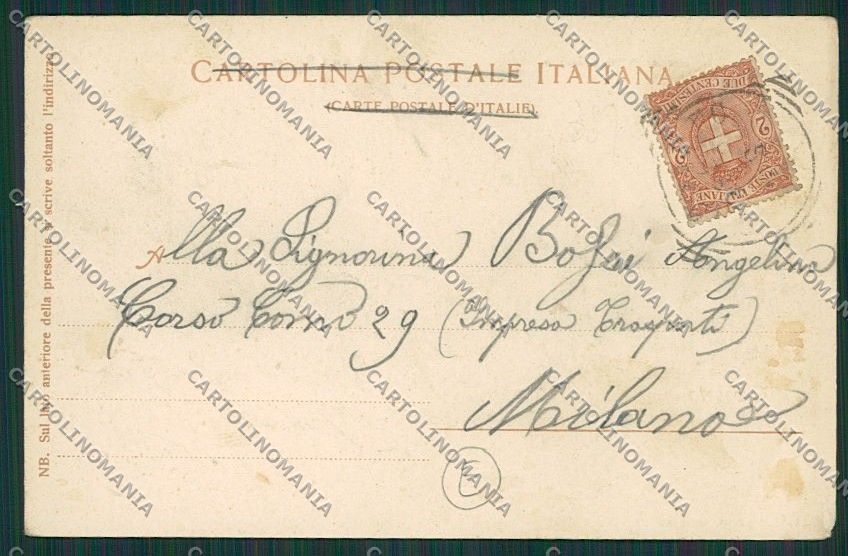 CARTOLINA POSTALE ITALIANA
(CARTE POSTALE D'ITALIE)
DUE CENTESIMI
2 2
POSTE ITALIANE
Alla Signorina Angelina
Corso Como 29 (Impresa Trasporti)
Milano
NB. Sul lato anteriore della presente si scrive soltanto l'indirizzo
CARTOLINOMANIA